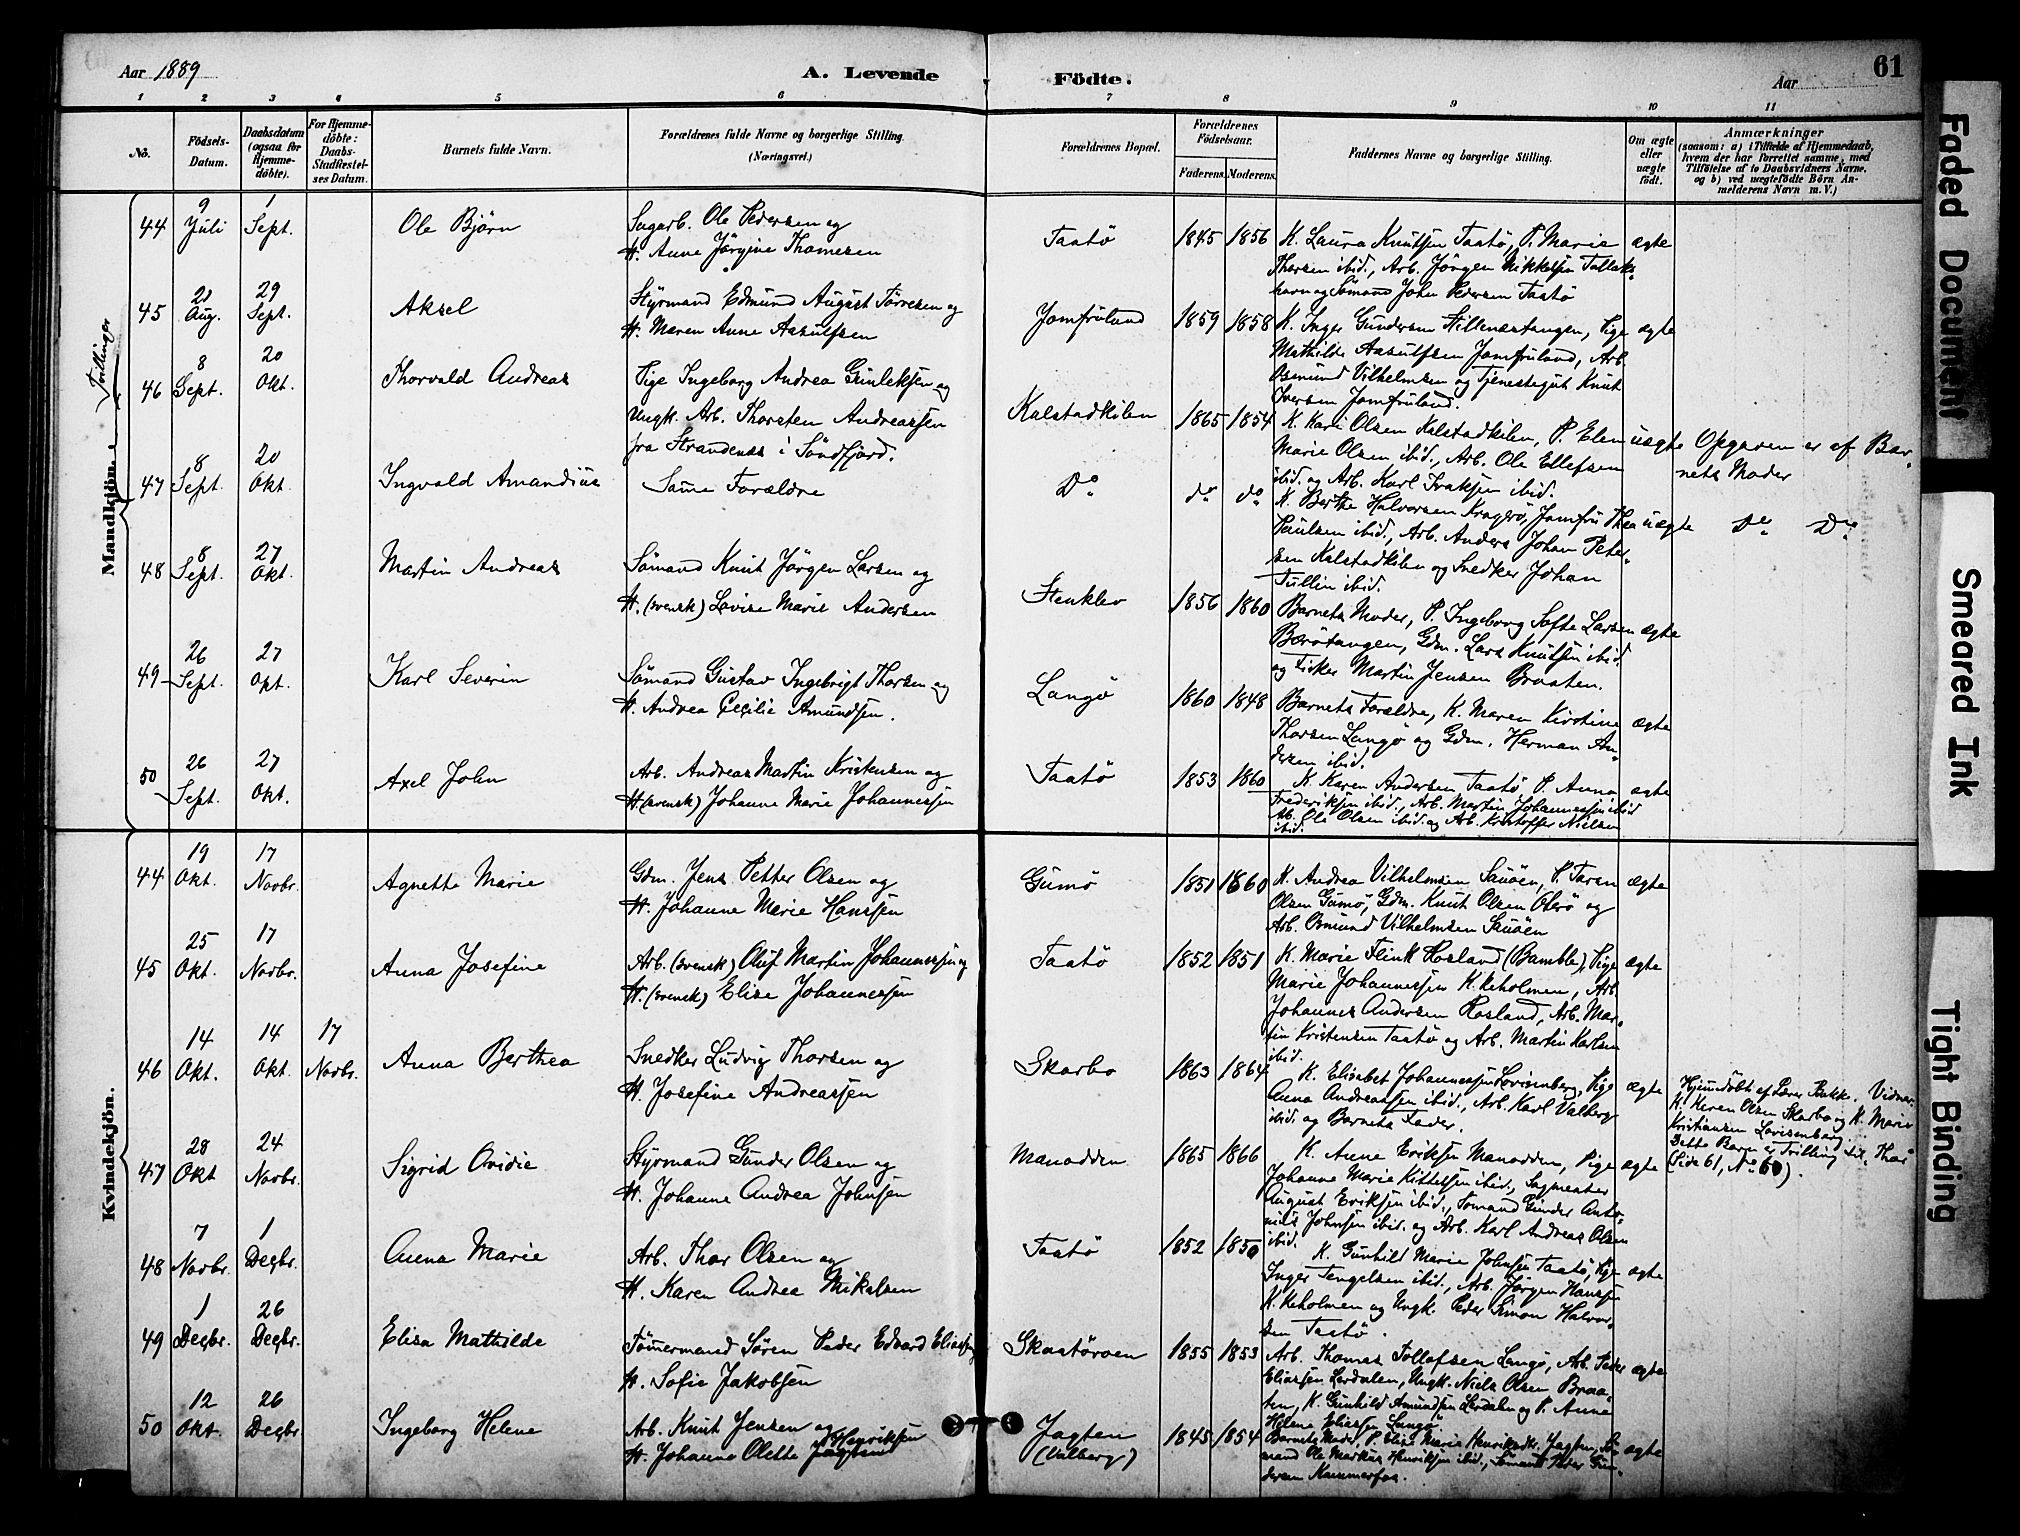 Aar 1889
A. Levende Födte.
Aar
61
1 2 3 4 5 6 7 8 9 10 11
No.
Födsels-Datum.
Daabsdatum (ogsaa for Hjemme-döbte).
For Hjemme-döbte: Daabs-Stadfæstel-ses Datum.
Barnets fulde Navn.
Forældrenes fulde Navne og borgerlige Stilling. (Næringsvei.)
Forældrenes Bopæl.
Forældrenes Födselsaar.
Faderens. Moderens.
Faddernes Navne og borgerlige Stilling.
Om ægte eller uægte födt.
Anmærkninger
(saasom: a) i Tilfælde af Hjemmedaab,
hvem der har forrettet samme, med
Tilföielse af to Daabsvidners Navne,
og b) ved uægtefödte Börn An-
melderens Navn m. V.)
Mandkjön.
Tvillinger
44 9 Juli 1 Sept. Ole Björn
Ole Pedersen og
H. Anne Jörgine Thomesen
Taatö 1845 1856
K. Laura Knutsen Taatö, P. Marie
Thorsen ibid., Arb. Jörgen Mikkelsen
og Sömand John Pedersen Taatö
ægte
45 21 Aug. 29 Sept. Aksel
Styrmand Edmund August Törresen og
H. Maren Anne Aasulfsen
Jomfruland 1859 1858
K. Inger Gundersen Stillenæstangen, Pige
Mathilde Aasulfsen Jomfruland, Arb.
Osmund Vilhelmsen og Tjenestegut Knut
Iversen Jomfruland.
ægte
46 8 Sept. 20 Okt. Thorvald Andreas
Pige Ingeborg Andrea Gunleksen og
Ungk. Arb. Thorsten Andreassen
fra Strandenæs i Söndfjord.
Kalstadkilen 1865 1854
K. Kari Olsen Kalstadkilen, P. Elen
Marie Olsen ibid., Arb. Ole Ellefsen
ibid. og Arb. Karl Isaksen ibid.
uægte
Opgaven er af Bar-
nets Moder
47 8 Sept. 20 Okt. Ingvald Amandius
Samme Forældre
Do do do
K. Berthe Halvorsen Kragerö, Jomfru Thea
Paulsen ibid., Arb. Anders Johan Peter-
sen Kalstadkilen og Snedker Johan
Tullin ibid.
uægte
Do Do
48 8 Sept. 27 Okt. Martin Andreas
Sömand Knut Jörgen Larsen og
H. (svensk) Lovise Marie Andersen
Stenklev 1856 1860
Barnets Moder, P. Ingeborg Sofie Larsen
Bærötangen, Gdm. Lars Knutsen ibid.
og Fisker Martin Jensen Braaten.
ægte
49 26 Sept. 27 Okt. Karl Severin
Sömand Gustav Ingebrigt Thorsen og
H. Andrea Cecilie Amundsen.
Langö 1860 1848
Barnets Forældre, K. Maren Kirstine
Thorsen Langö og Gdm. Herman An-
dersen ibid.
ægte
50 26 Sept. 27 Okt. Axel John
Arb. Andreas Martin Kristensen og
H (svensk) Johanne Marie Johannessen
Taatö 1853 1860
K. Karen Andersen Taatö, P. Anna
Frederiksen ibid., Arb. Martin Johannessen ibid
Arb. Ole Olsen ibid. og Arb. Kristoffer Nielsen
ibid.
ægte
Kvindekjön.
44 19 Okt. 17 Novbr. Agnette Marie
Gdm. Jens Petter Olsen og
H. Johanne Marie Hansen
Gumö 1851 1860
K. Andrea Vilhelmsen Sauöen, P. Taran
Olsen Gumö, Gdm. Knut Olsen Oterö og
Arb. Osmund Vilhelmsen Sauöen
ægte
45 25 Okt. 17 Novbr. Anna Josefine
Arb. (svensk) Oluf Martin Johannessen og
H. (svensk) Elise Johannessen
Taatö 1852 1851
K. Marie Flink Rosland (Bamble), Pige
Marie Johannessen K.keholmen, Arb.
Johannes Andersen Rosland, Arb. Mar-
tin Kristensen Taatö og Arb. Martin Karlsen
ibid.
ægte
46 14 Okt. 14 Okt. 17 Novbr. Anna Berthea
Snedker Ludvig Thorsen og
H. Josefine Andreassen
Skarbo 1863 1864
K. Elisabet Johannessen Lovisenberg, Pige
Anna Andreassen ibid., Arb. Karl Valberg
ibid. og Barnets Fader.
ægte
Hjemdöbt af Lærer Bakke. Vidner:
K. Karen Olsen Skarbo og K. Marie
Kristiansen Lovisenberg.
Dette Barn er Tvilling til Thor
(Side 61, No 60).
47 28 Okt 24 Novbr. Sigrid Ovidie
Styrmand Gunder Olsen og
H. Johanne Andrea Johnsen
Manodden 1865 1866
K. Anne Eriksen Manodden, Pige
Johanne Marie Kittelsen ibid., Sagmester
August Eriksen ibid., Sömand Gunder Anto-
nius Johnsen ibid. og Arb. Karl Andreas Olsen
ibid.
ægte
48 7 Novbr. 1 Decbr. Anna Marie
Arb. Thor Olsen og
H. Karen Andrea Mikalsen
Taatö 1852 1850
K. Gunhild Marie Johnsen Taatö, Pige
Inger Tengelsen ibid., Arb. Jörgen Hansen
K.keholmen og Ungk. Peder Simon Halvor-
sen Taatö.
ægte
49 1 Decbr. 26 Decbr. Elisa Mathilde
Tömmermand Sören Peder Edvard Eliassen og
H. Sofie Jakobsen
Skaatöroen 1855 1853
Arb. Thomas Tollofsen Langö, Arb. Peder
Eliassen Lordalen, Ungk. Niels Olsen Braa-
ten, K. Gunhild Amundsen Lordalen og P. Anne
Helene Eliassen Langö
ægte
50 12 Okt. 26 Decbr Ingeborg Helene
Arb. Knut Jensen og
H. Johanne Olette Henriksen
Jagten (Valberg) 1845 1854
Barnets Moder, P. Elise Marie Henriksdr. Jagten, Sö-
mand Ole Markus Henriksen ibid., Sömand Peder Gun-
dersen Kammerfos.
ægte
Faded Document
Smeared Ink
Tight Binding